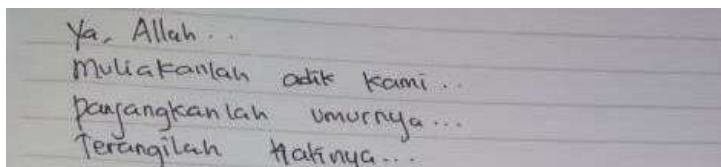 Ya, Allah..
Muliakanlah adik kami..
panjangkanlah umurnya...
Terangilah hatinya...